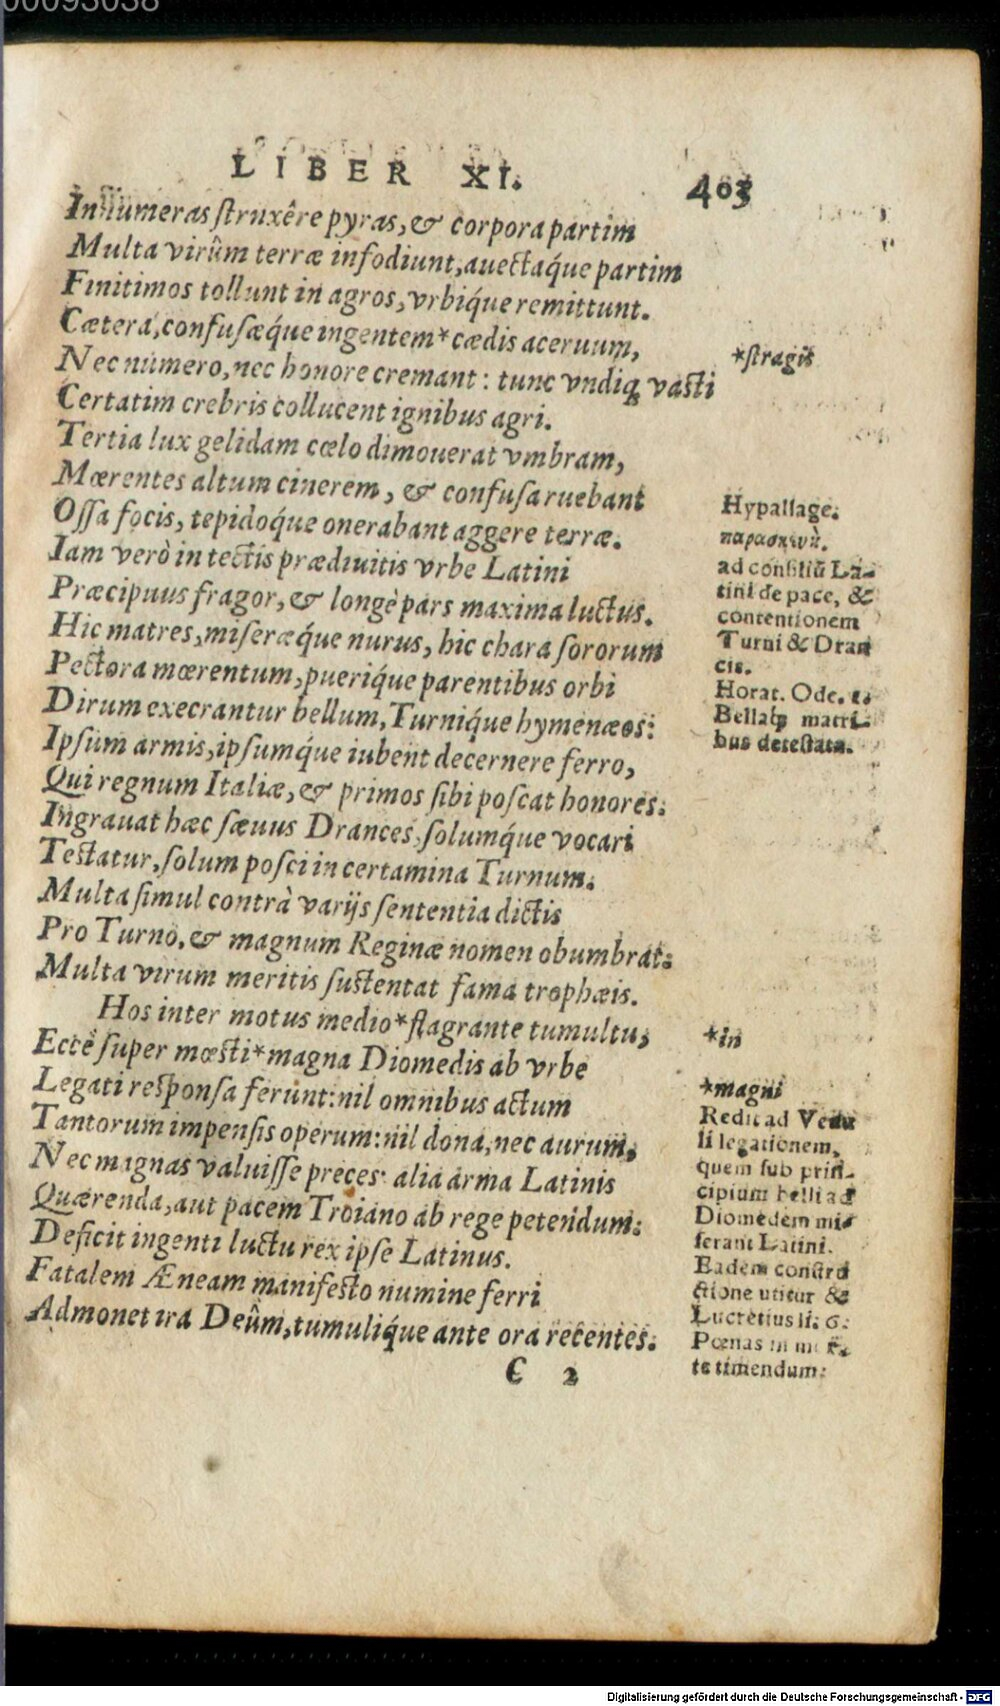 00093038
LIBER XI. 403
Innumeras ſtruxêre pyras, & corpora partim
Multa virûm terræ infodiunt, auectáque partim
Finitimos tollunt in agros, vrbíque remittunt.
Cætera, confuſǽque ingentem * cædis aceruum,
Nec numero, nec honore cremant: tunc vndiq; vaſti
Certatim crebris collucent ignibus agri.
Tertia lux gelidam cœlo dimouerat vmbram,
Mœrentes altum cinerem, & confuſa ruebant
Oſſa focis, tepidóque onerabant aggere terræ.
Iam verò in tectis prædiuitis vrbe Latini
Præcipuus fragor, & longè pars maxima luctus.
Hic matres, miſerǽque nurus, hic chara ſororum
Pectora mœrentum, pueríque parentibus orbi
Dirum execrantur bellum, Turníque hymenæos:
Ipſum armis, ipſúmque iubent decernere ferro,
Qui regnum Italiæ, & primos ſibi poſcat honores.
Ingrauat hæc ſæuus Drances, ſolúmque vocari
Teſtatur, ſolum poſci in certamina Turnum.
Multa ſimul contrà varijs ſententia dictis
Pro Turno, & magnum Reginæ nomen obumbrat:
Multa virum meritis ſuſtentat fama trophæis.
Hos inter motus medio * flagrante tumultu,
Ecce ſuper mœſti * magna Diomedis ab vrbe
Legati reſponſa ferunt: nil omnibus actum
Tantorum impenſis operum: nil dona, nec aurum,
Nec magnas valuiſſe preces: alia arma Latinis
Quærenda, aut pacem Troiano ab rege petendum:
Deficit ingenti luctu rex ipſe Latinus.
Fatalem Æneam manifeſto numine ferri
Admonet ira Deûm, tumulíque ante ora recentes.
C 2
*ſtragis
Hypallage.
ad conſiliū La-
tini de pace, &
contentionem
Turni & Dran
cis.
Horat. Ode. 1.
Bellaq; matri-
bus deteſtata.
*in
*magni
Redit ad Venu
li legationem,
quem ſub prin-
cipium belli ad
Diomedem mi-
ſerant Latini.
Eadem conſtru
ctione utitur &
Lucretius li. 6.
Pœnas in
te timendum:
Digitalisierung gefördert durch die Deutsche Forschungsgemeinschaft - DFG